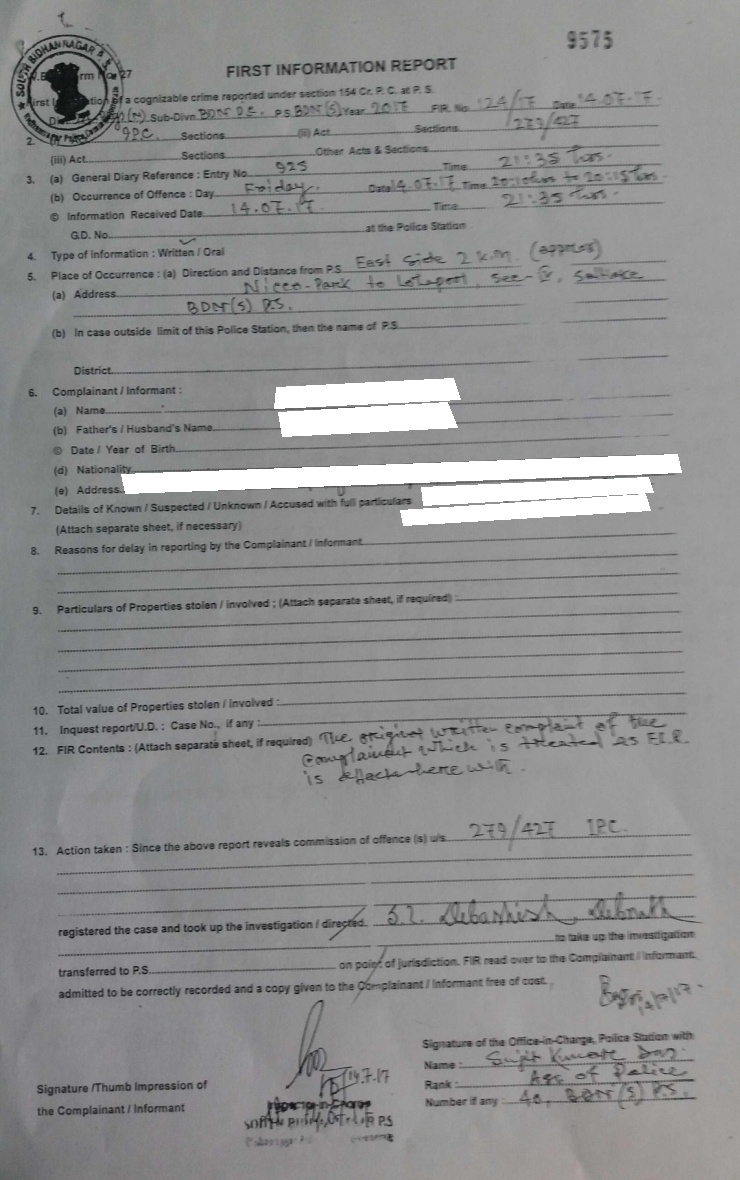 9575
FIRST INFORMATION REPORT
SOUTH BIDHANNAGAR
orm No 27
First of a cognizable crime reported under section 154 Cr. P. C. at P. S.
Sub-Divn. BDN P.S. BDN(S) Year 2017 FIR. No. 124/17 Date 14.07.17.
2. IPC Sections (ii) Act Sections 279/427
(iii) Act Sections Other Acts & Sections
3. (a) General Diary Reference : Entry No 925 Time 21:35 hrs.
(b) Occurrence of Offence : Day Friday. Date 14.07.17 Time 20:10hrs to 20:15 hrs.
© Information Received Date 14.07.17. Time 21:35 hrs.
G.D. No. at the Police Station
4. Type of Information : Written / Oral
5. Place of Occurrence : (a) Direction and Distance from P.S. East Side 2 K.M. (approx)
(a) Address Nicco-Park to Sec-V, Saltlake
BDN(S) P.S.
(b) In case outside limit of this Police Station, then the name of P.S
District
6. Complainant / Informant :
(a) Name
(b) Father's / Husband's Name
© Date / Year of Birth
(d) Nationality
(e) Address
7. Details of Known / Suspected / Unknown / Accused with full particulars
(Attach separate sheet, if necessary)
8. Reasons for delay in reporting by the Complainant / Informant
9. Particulars of Properties stolen / involved : (Attach separate sheet, if required)
10. Total value of Properties stolen / involved :
11. Inquest report/U.D. : Case No., if any :
12. FIR Contents : (Attach separate sheet, if required) The original written complaint of the
Complainant which is treated as F.I.R
is attach here with.
13. Action taken : Since the above report reveals commission of offence (s) u/s. 279/427 IPC.
registered the case and took up the investigation / directed. S.I. Debashish Debnath
to take up the investigation
transferred to P.S. on point of jurisdiction. FIR read over to the Complainant / Informant.
admitted to be correctly recorded and a copy given to the Complainant / Informant free of cost.
14/7/17.
Signature of the Office-in-Charge, Police Station with
Name : Sujit Kumar Das.
14.7.17
Signature /Thumb Impression of
Rank : of Police
the Complainant / Informant
Inspector-in-Charge
Number if any : 40, BDN(S) P.S.
P.S